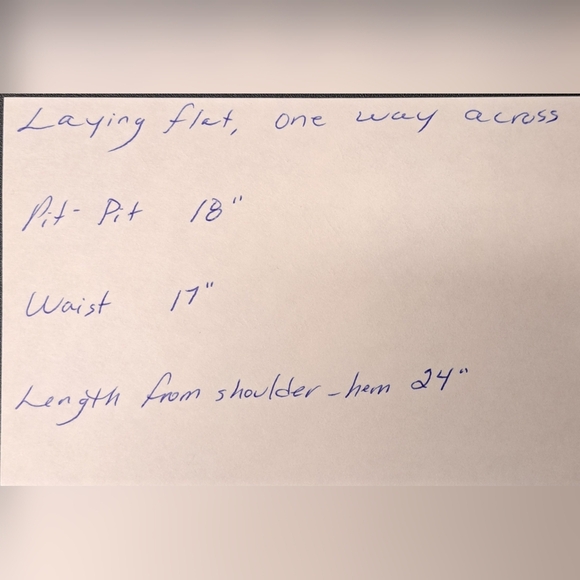 Laying flat, one way across
Pit-Pit 18"
Waist 17"
Length from shoulder-hem 24"